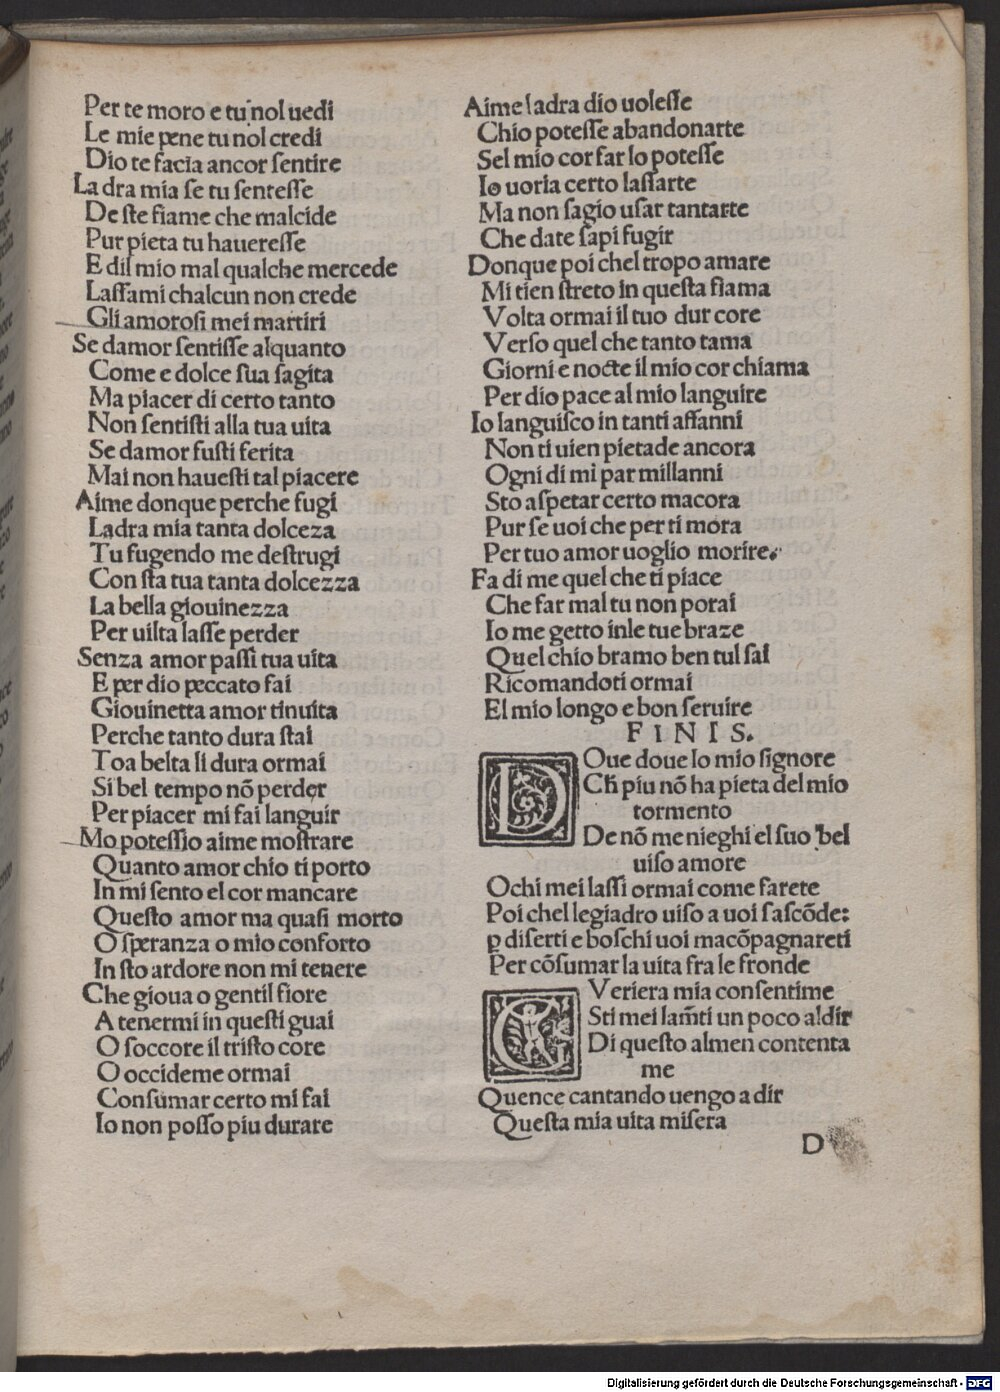 Per te moro e tu nol uedi
Le mie pene tu nol credi
Dio te facia ancor ſentire
La dra mia ſe tu ſenteſſe
De ſte fiame che malcide
Pur pieta tu hauereſſe
E dil mio mal qualche mercede
Laſſami chalcun non crede
Gli amoroſi mei martiri
Se damor ſentiſſe alquanto
Come e dolce ſua ſagita
Ma piacer di certo tanto
Non ſentiſti alla tua uita
Se damor fuſti ferita
Mai non haueſti tal piacere
Aime donque perche fugi
Ladra mia tanta dolceza
Tu fugendo me deſtrugi
Con ſta tua tanta dolcezza
La bella giouinezza
Per uilta laſſe perder
Senza amor paſſi tua uita
E per dio peccato fai
Giouinetta amor tinuita
Perche tanto dura ſtai
Toa belta li dura ormai
Si bel tempo nõ perder
Per piacer mi fai languir
Mo poteſſio aime moſtrare
Quanto amor chio ti porto
In mi ſento el cor mancare
Queſto amor ma quaſi morto
O ſperanza o mio conforto
In ſto ardore non mi tenere
Che gioua o gentil fiore
A tenermi in queſti guai
O ſoccore il triſto core
O occideme ormai
Conſumar certo mi fai
Io non poſſo piu durare
Aime ladra dio uoleſſe
Chio poteſſe abandonarte
Sel mio cor far lo poteſſe
Io uoria certo laſſarte
Ma non ſagio uſar tantarte
Che date ſapi fugir
Donque poi chel tropo amare
Mi tien ſtreto in queſta fiama
Volta ormai il tuo dur core
Verſo quel che tanto tama
Giorni e nocte il mio cor chiama
Per dio pace al mio languire
Io languiſco in tanti affanni
Non ti uien pietade ancora
Ogni di mi par millanni
Sto aſpetar certo macora
Pur ſe uoi che per ti mora
Per tuo amor uoglio morire.
Fa di me quel che ti piace
Che far mal tu non porai
Io me getto inle tue braze
Quel chio bramo ben tul ſai
Ricomandoti ormai
El mio longo e bon ſeruire
FINIS.
DOue doue lo mio ſignore
Ch̃ piu nõ ha pieta del mio
tormento
De nõ me nieghi el ſuo bel
uiſo amore
Ochi mei laſſi ormai come farete
Poi chel legiadro uiſo a uoi ſaſcõde:
ꝑ diſerti e boſchi uoi macõpagnareti
Per cõſumar la uita fra le fronde
GVeriera mia conſentime
Sti mei lam̃ti un poco aldir
Di queſto almen contenta
me
Quence cantando uengo a dir
Queſta mia uita miſera
D
Digitalisierung gefördert durch die Deutsche Forschungsgemeinschaft - DFG